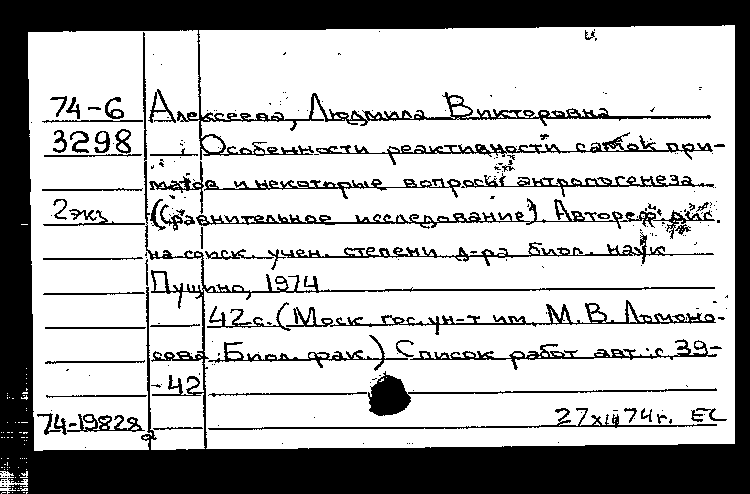 и.
74-6 Алексеева, Людмила Викторовна
3298 Особенности реактивности самок при-
матов и некоторые вопросы антропогенеза.
2 экз. (Сравнительное исследование). Автореф. дис.
на соиск. учен. степени д-ра биол. наук
Пущино, 1974
42 с. (Моск. гос. ун-т им. М. В. Ломоно-
сова. Биол. фак.) Список работ авт.: с. 39-
-42
74-19828 27 XII 74 г. ЕС